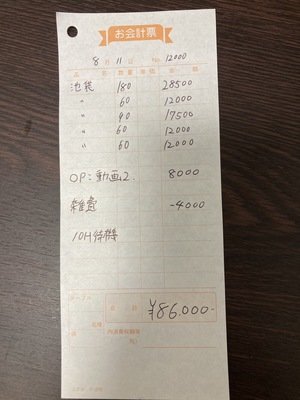 お会計票
8月 11日 No. 12000
品名 数量 単価 金額
池袋 180 28500
〃 60 12000
〃 90 17500
〃 60 12000
〃 60 12000
OP:動画2. 8000
雑費 -4000
10H待機
テーブル
合計 ¥86.000-
係 名様 内消費税額等